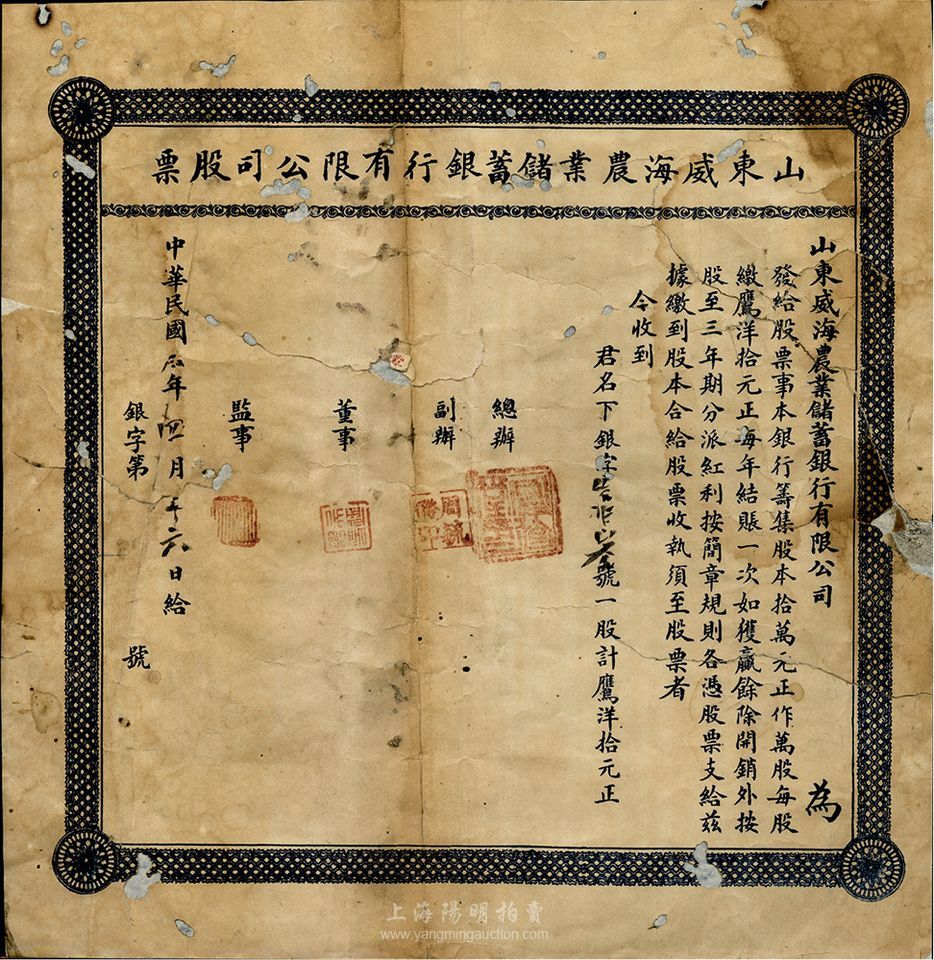 山東威海農業儲蓄銀行有限公司股票
山東威海農業儲蓄銀行有限公司 為
發給股票事本銀行籌集股本拾萬元正作萬股每股
繳鷹洋拾元正每年結賬一次如獲贏餘除開銷外按
股至三年期分派紅利按簡章規則各憑股票支給茲
據繳到股本合給股票收執須至股票者
今收到
君名下銀字 號一股計鷹洋拾元正
總辦
副辦
董事
監事
中華民國 年四月 六日給
銀字第 號
上海陽明拍賣
www.yangmingauction.com